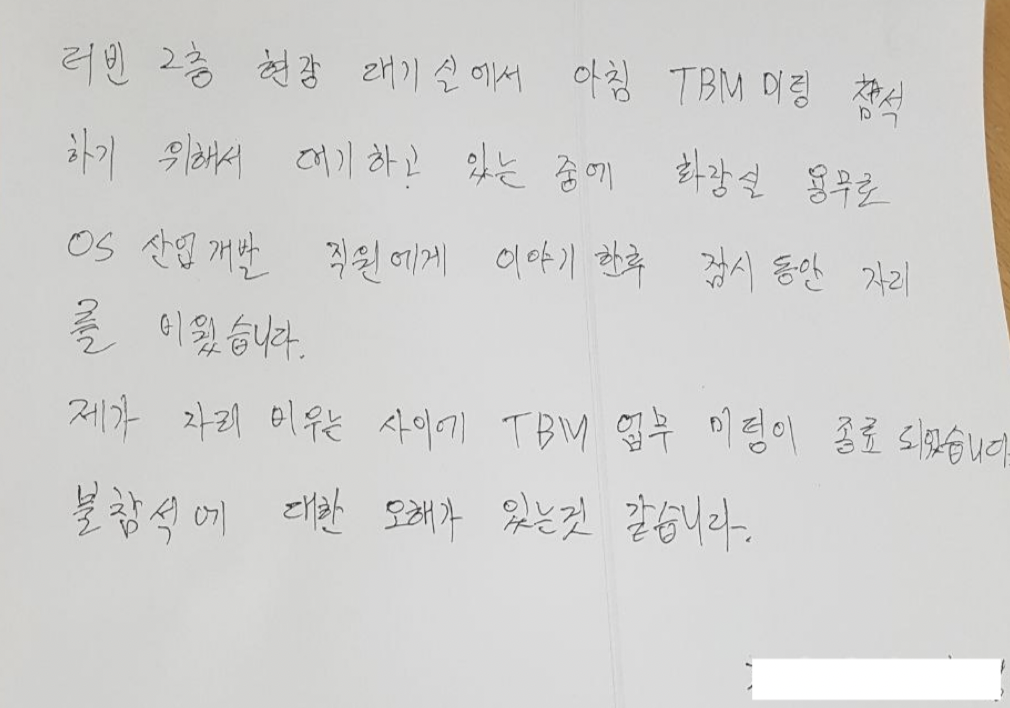 터빈 2층 현장 대기실에서 아침 TBM 미팅 참석
하기 위해서 대기하고 있는 중에 화장실 용무로
OS 산업개발 직원에게 이야기 한후 잠시 동안 자리
를 비웠습니다.
제가 자리 비우는 사이에 TBM 업무 미팅이 종료 되었습니다
불참석에 대한 오해가 있는것 같습니다.